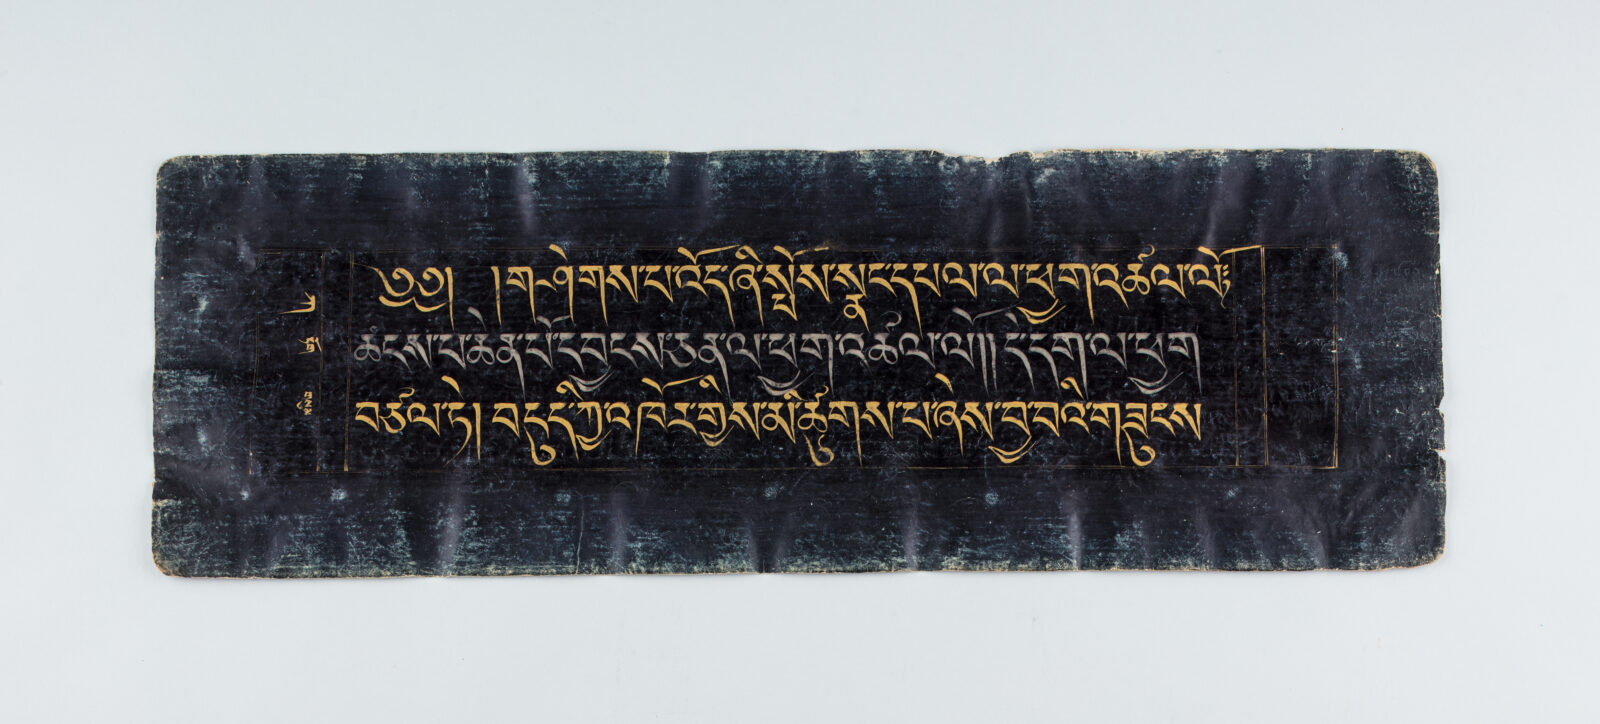 ༄༅། །ག་ཤེགས་པ་འོད་ཞི་སྤོས་སྣང་དཔལ་ལ་ཕྱག་འཚལ་ལོ༔
ཚངས་པ་ཆེན་པོ་དབྱངས་ཅན་ལ་ཕྱག་འཚལ་ལོ།། དེ་དག་ལ་ཕྱག
བཙལ་ཏེ། བདུད་ཀྱི་འཁོར་གྱིས་མི་ཚུགས་པ་ཞེས་བྱ་བའི་གཟུངས